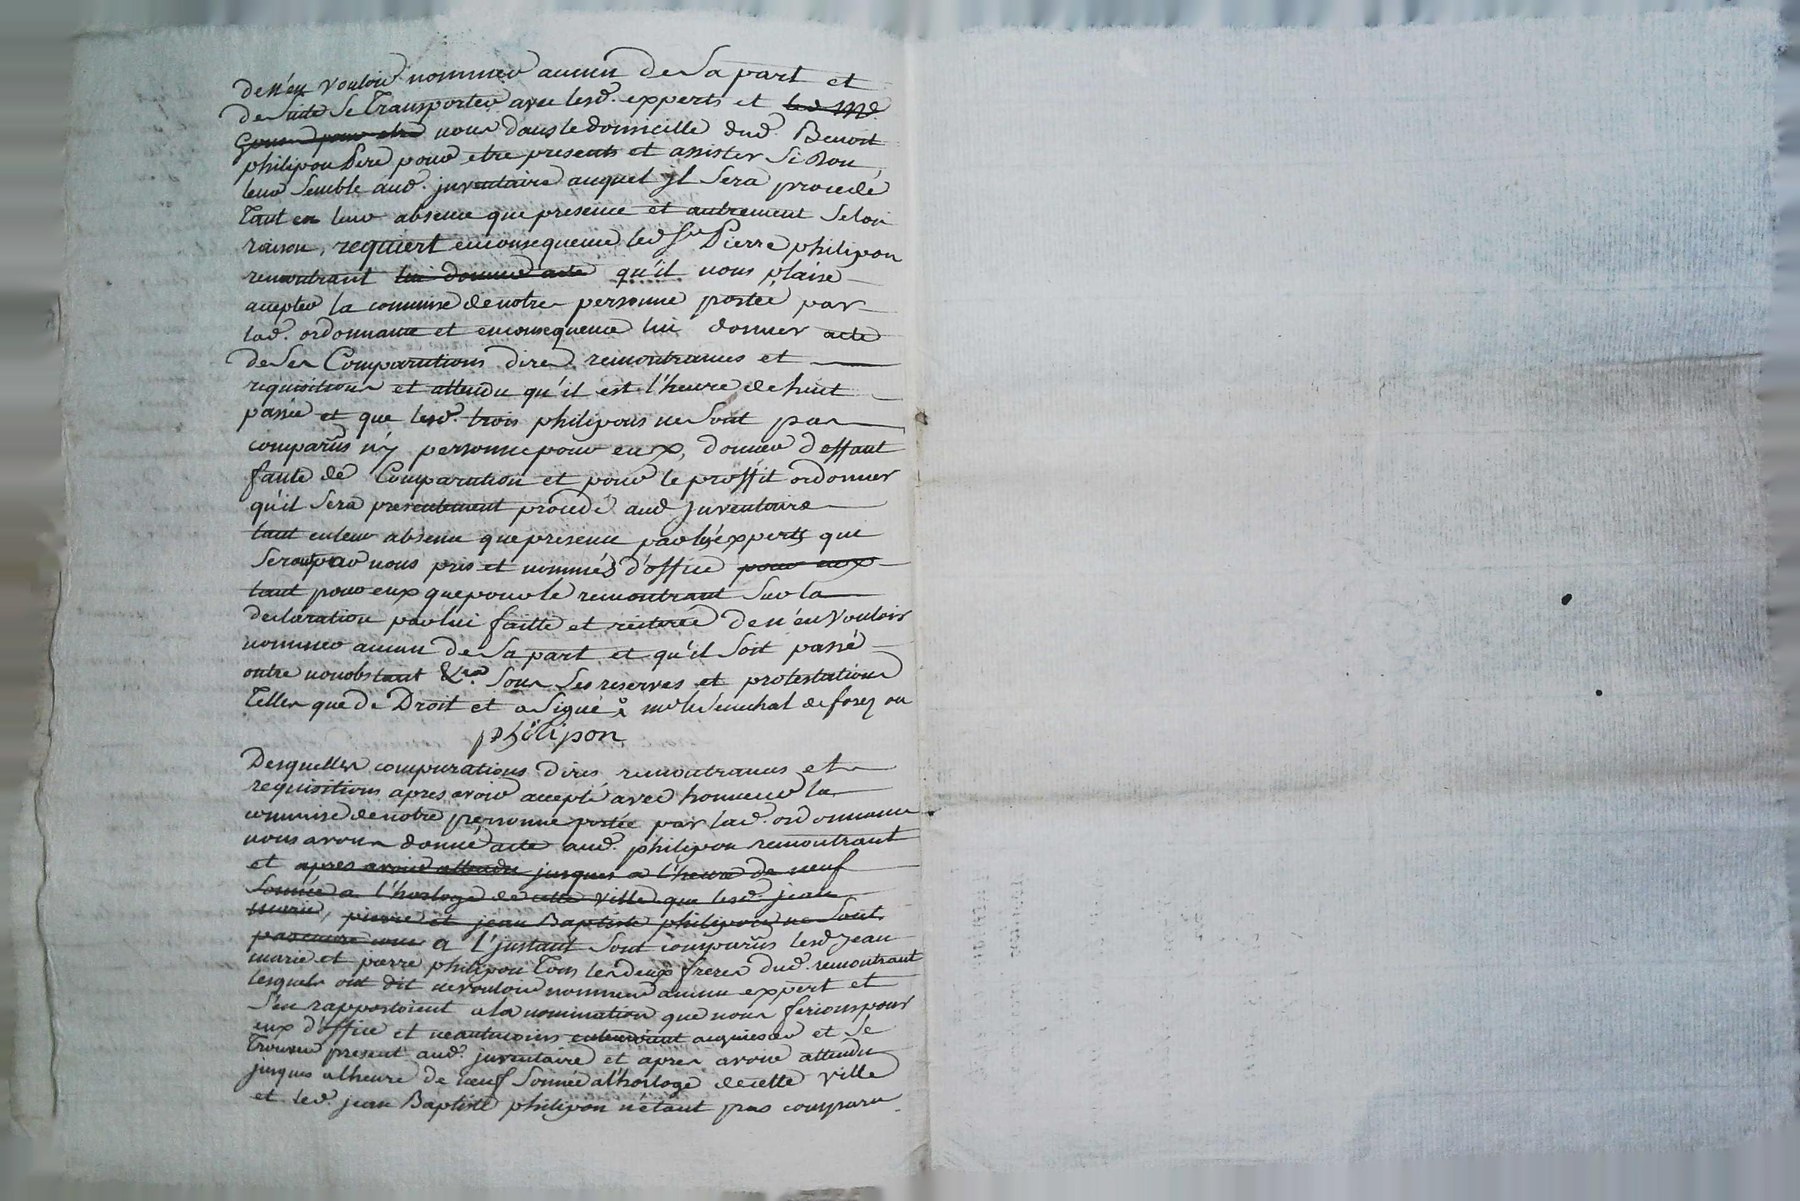 de n'en vouloir nommer aucun de sa part et
de suite se transporter avec lesd. experts et led Me
pour etre nous dans le domicille dud. Benoit
philipon Pere pour etre presents et assister si Bon
leur semble aud. juventaire auquel jl sera procedé
tant en leur absence que presence et autrement selon
raison, requiert enconsequence led Sr Pierre philipon
remontrant lui donner acte qu'il nous plaise
accepter la commise de notre personne portée par
lad. ordonnance et enconsequence lui donner acte
de ses Comparutions dires remontrances et
requisitions et attendu qu'il est l'heure de huit
passée et que lesd. trois philipons ne sont pas
comparûs n'y personne pour eux, donner deffaut
faute de Comparution et pour le proffit ordonner
qu'il sera presentement procedé aud juventaire
tant enleur absence que presence par les experts que
seront par nous pris et nommés d'office pour eux
tant pour eux que pour le remontrant sur la
declaration par lui faitte et reiterée de n'en vouloir
nommer aucun de sa part et qu'il soit passé
outre nonobstant &ca sous ses reserves et protestations
telles que de Droit et a signé à mr le senechal de forez ou
philipon
Desquelles comparutions dires remontrances et
requisitions apres avoir accepté avec honneur la
commise de notre personne portée par lad. ordonnance
nous avons donné acte aud. philipon remontrant
et apres avoir attendu jusques a l'heure de neuf
sonnée a l'horloge de cette ville que lesd. jean
marie, pierre et jean Baptiste philipons ne sont
pas encore venu a l'jnstant sont comparûs lesd jean
marie et pierre philipon tous les deux freres dud. remontrant
lesquels ont dit ne vouloir nommer aucun expert et
s'en rapportoient a la nomination que nous ferions pour
eux d'office et neantmoins entendoient acquiescer et se
trouver present aud. juventaire et apres avoir attendu
jusques a lheure de neuf sonnée a l'horloge de cette ville
et led. jean Baptiste philipon n'etant pas comparu